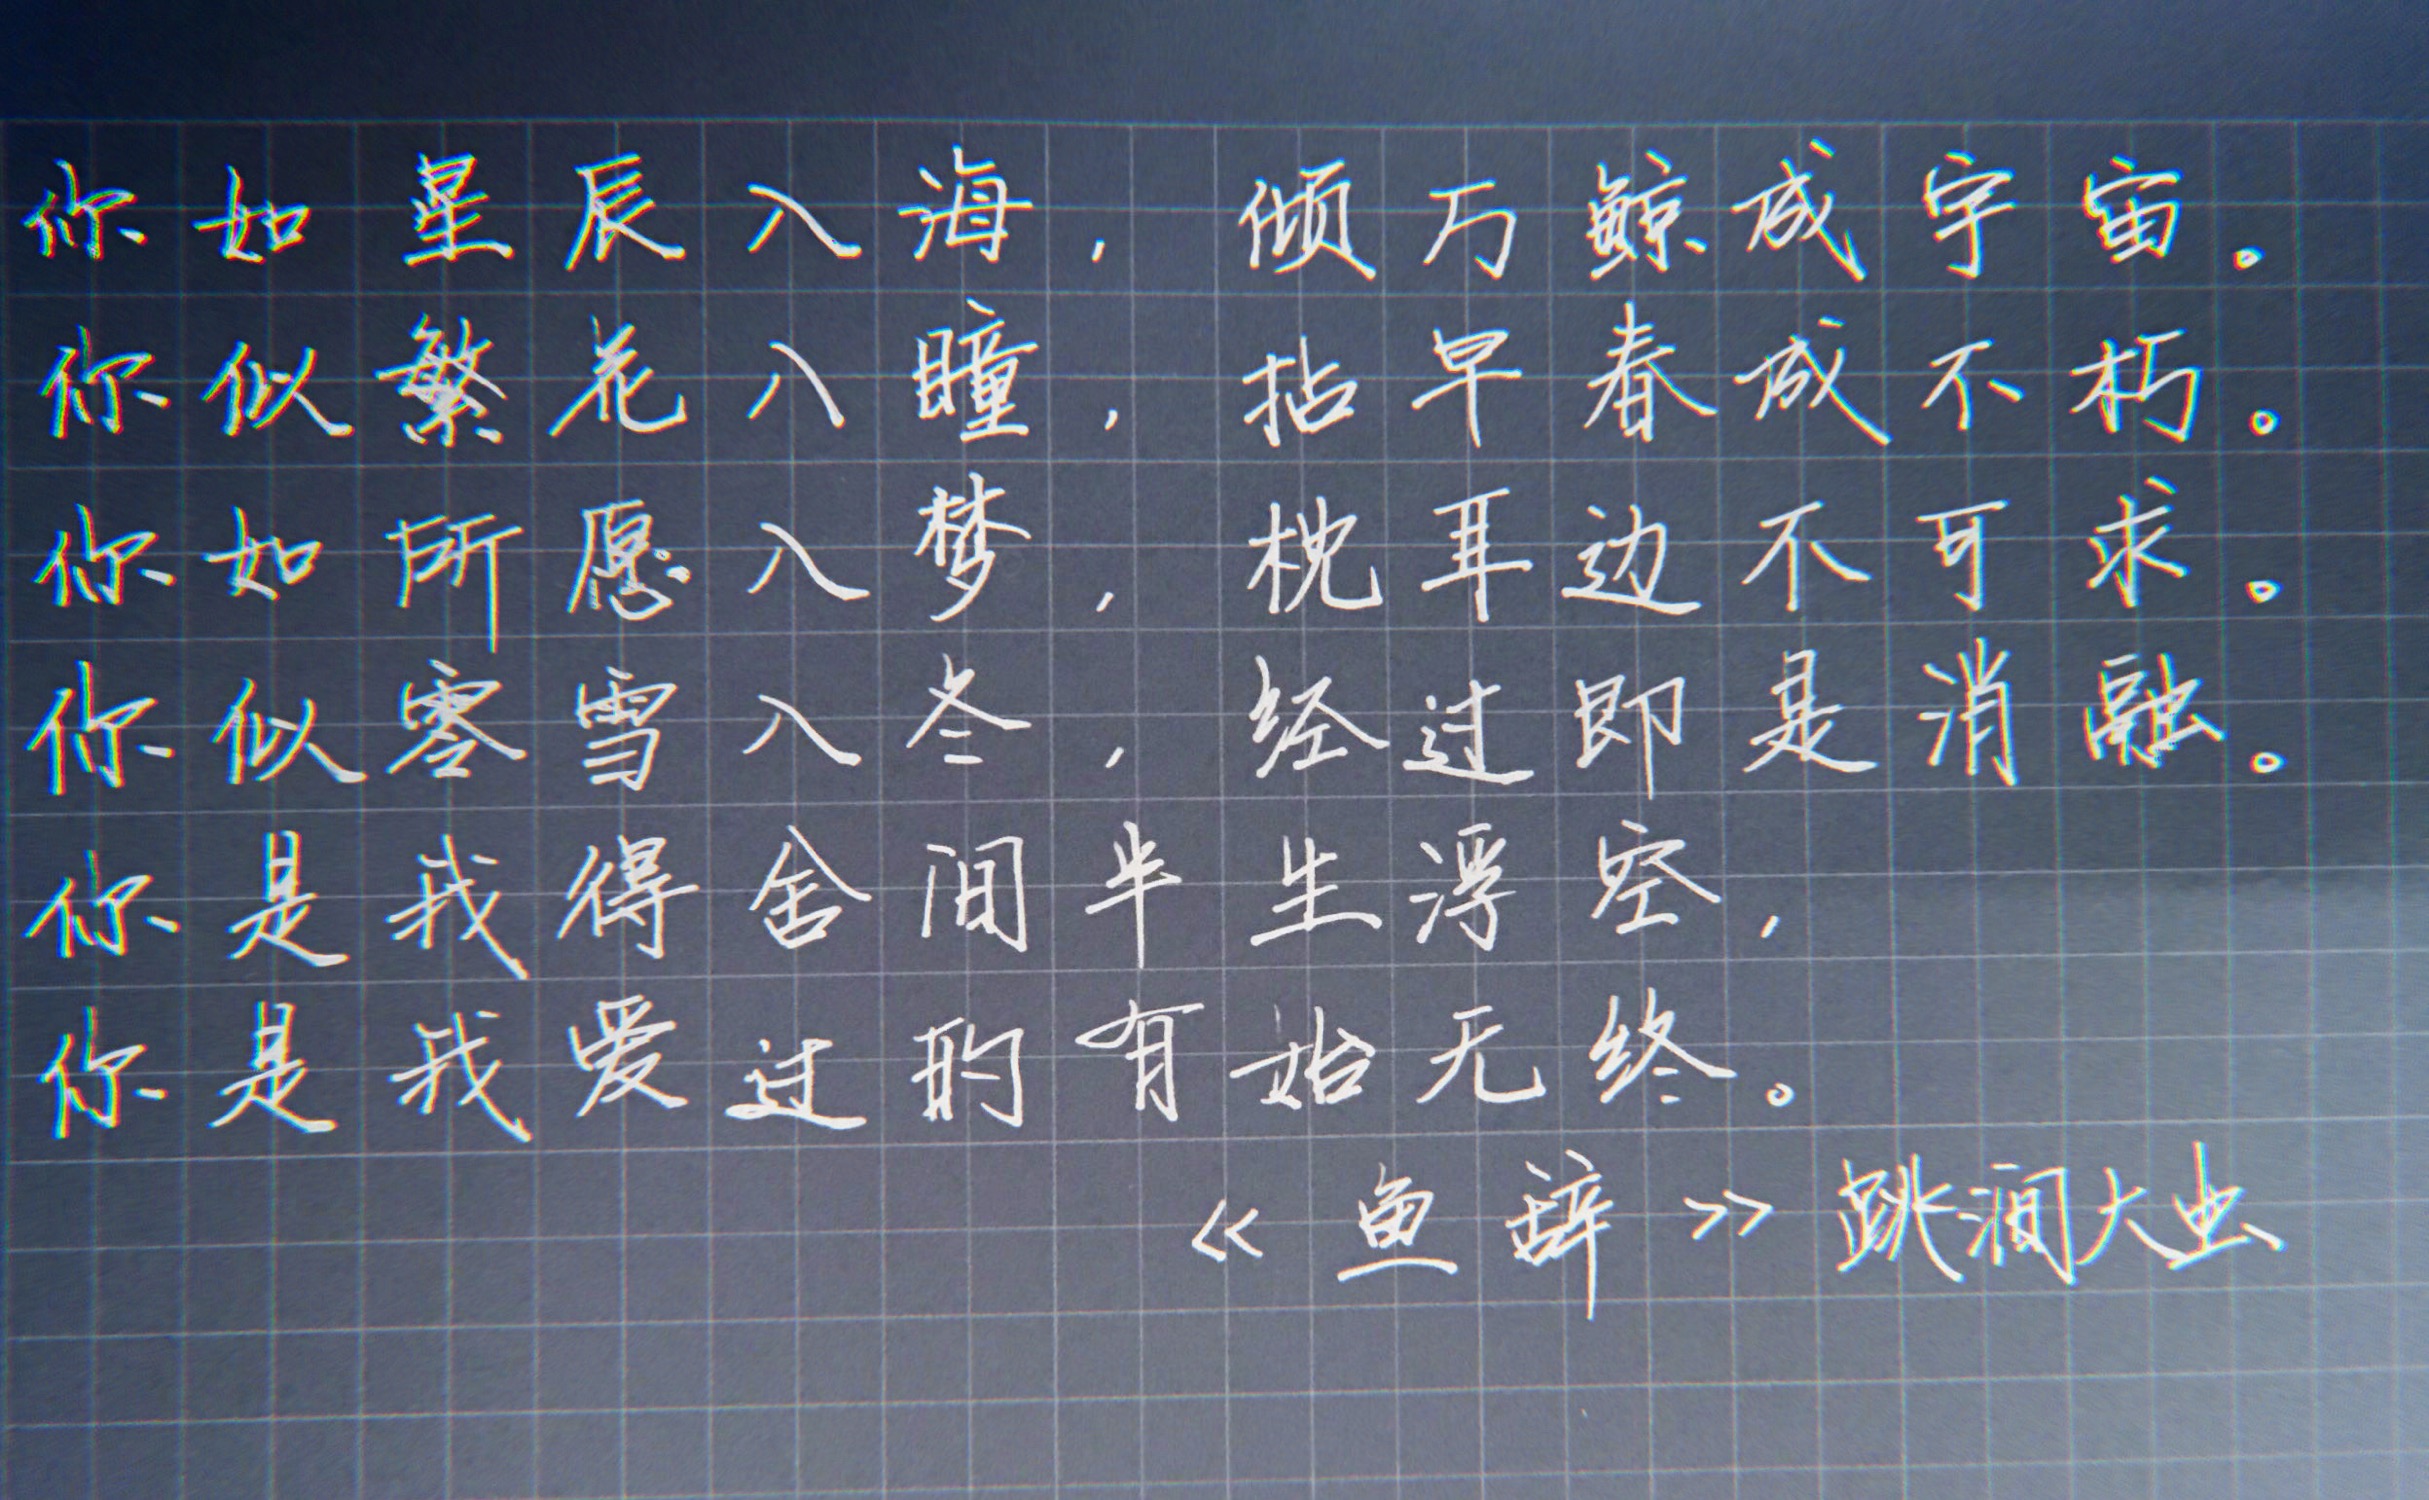 你如星辰入海，倾万鲸成宇宙。
你似繁花入瞳，拈早春成不朽。
你如所愿入梦，枕耳边不可求。
你似零雪入冬，经过即是消融。
你是我得舍间半生浮空，
你是我爱过的有始无终。
《鱼辞》跳涧大虫